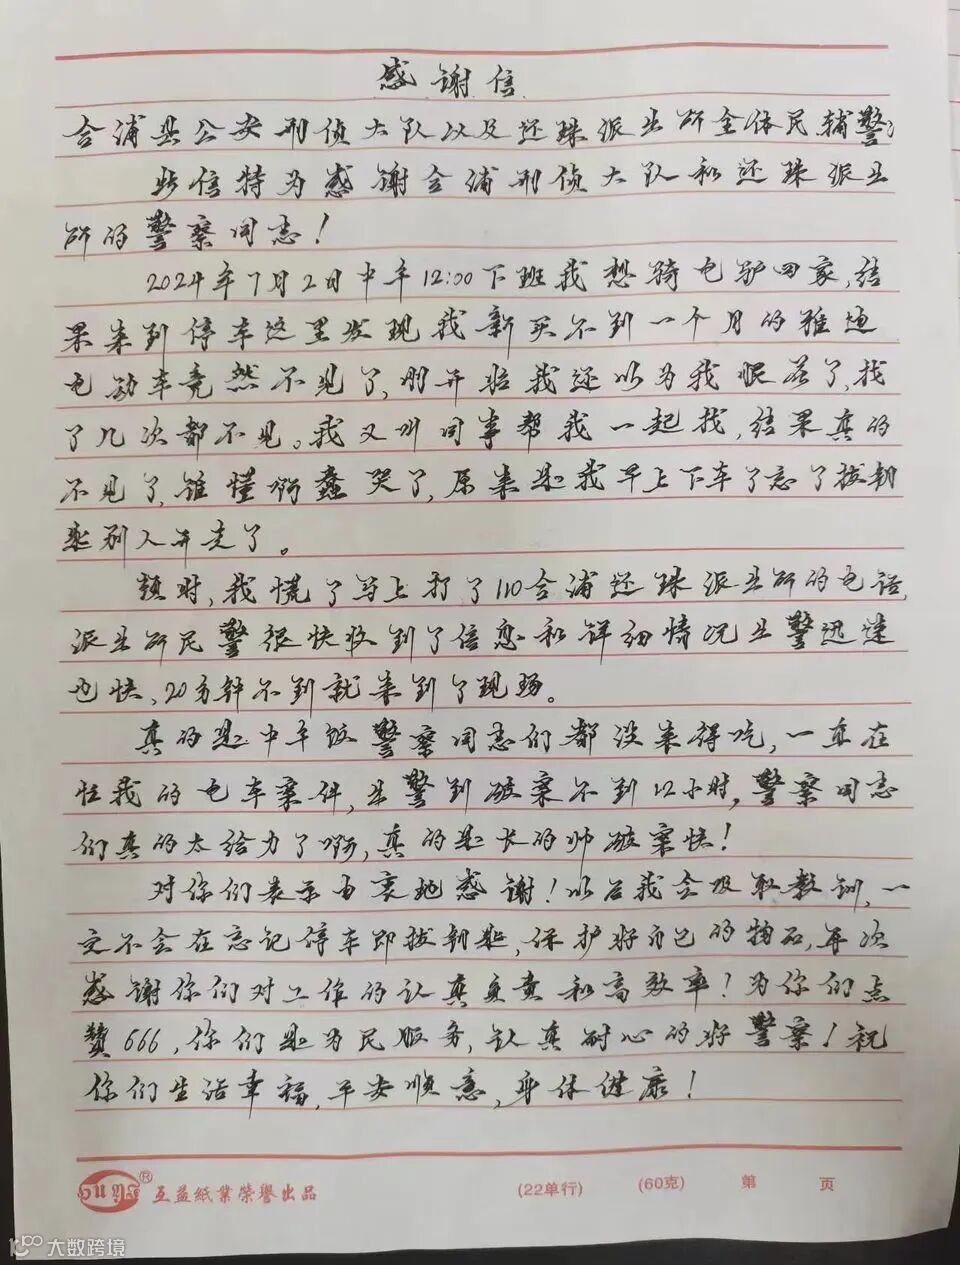 感谢信
合浦县公安刑侦大队以及还珠派出所全体民辅警:
此信特为感谢合浦刑侦大队和还珠派出
所的警察同志!
2024年7月2日中午12:00下班我想骑电驴回家,结
果来到停车这里发现我新买不到一个月的雅迪
电动车竟然不见了,刚开始我还以为我眼花了,找
了几次都不见。我又叫同事帮我一起找,结果真的
不见了,谁懂啊蠢哭了,原来是我早上下车了忘了拔钥
匙别人开走了。
顿时,我慌了马上打了110合浦还珠派出所的电话,
派出所民警很快收到了信息和详细情况出警迅速
也快、20分钟不到就来到了现场。
真的是中午饭警察同志们都没来得吃,一直在
忙我的电车案件,出警到破案不到12小时,警察同志
们真的太给力了啊,真的是长的帅破案快!
对你们表示由衷地感谢!以后我会吸取教训,一
定不会在忘记停车即拔钥匙,保护好自己的物品,再次
感谢你们对工作的认真负责和高效率!为你们点
赞666,你们是为民服务,认真耐心的好警察!祝
你们生活幸福,平安顺意,身体健康!
互益紙業榮譽出品 (22单行) (60克) 第 页
大数跨境